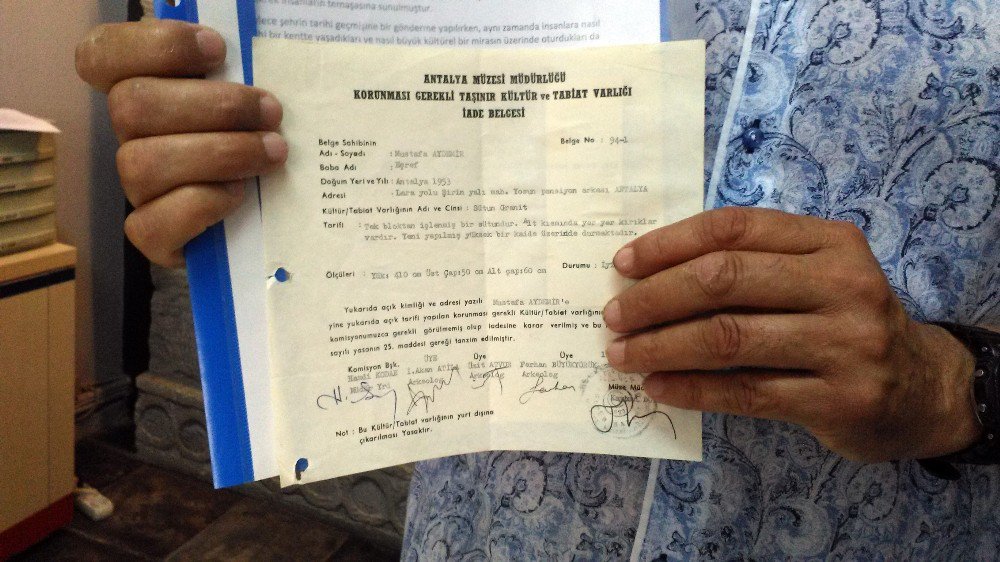 insanların temaşasına sunulmuştur.
lece şehrin tarihi geçmişine bir gönderme yapılırken, aynı zamanda insanlara nasıl
bir kentte yaşadıkları ve nasıl büyük kültürel bir mirasın üzerinde oturdukları da
ANTALYA MÜZESİ MÜDÜRLÜĞÜ
KORUNMASI GEREKLİ TAŞINIR KÜLTÜR ve TABİAT VARLIĞI
İADE BELGESİ
Belge Sahibinin
Belge No : 94-1
Adı - Soyadı : Mustafa AYDEMİR
Baba Adı : Eşref
Doğum Yeri ve Yılı : Antalya 1953
Adresi : Lara yolu Şirin yalı mah. Yosun pansiyon arkası ANTALYA
Kültür/Tabiat Varlığının Adı ve Cinsi : Sütun Granit
Tarifi : Tek bloktan işlenmiş bir sütundur. Alt kısmında yer yer kırıklar
vardır. Yeni yapılmış yüksek bir kaide üzerinde durmaktadır.
Ölçüleri : Yük: 410 cm Üst Çap:50 cm Alt çap:60 cm Durumu :
Yukarıda açık kimliği ve adresi yazılı Mustafa AYDEMİR'e
yine yukarıda açık tarifi yapılan korunması gerekli Kültür/Tabiat varlığının
komisyonumuzca gerekli görülmemiş olup iadesine karar verilmiş ve bu
sayılı yasanın 25. maddesi gereği tanzim edilmiştir.
Komisyon Bşk. ÜYE Üye Üye
Hamdi KODAN İ.Akan ATİLA Ümit Ferhan BÜYÜKYÖRÜK
Müdür Yrd Arkeolog Arkeolog Arkeolog Müze Müd
Not : Bu Kültür/Tabiat varlığının yurt dışına
çıkarılması Yasaktır.